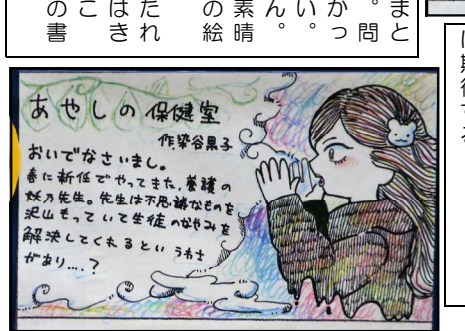 まと
。問
かっ
い。
ん。
素晴
の絵
たれ
はき
こ
の書
あやしの保健室
作染谷果子
おいでなさいまし。
春に新任でやってきた、養護の
妖乃先生。先生は不思議なものを
沢山もっていて生徒のなやみを
解決してくれるという うわさ
があり....?